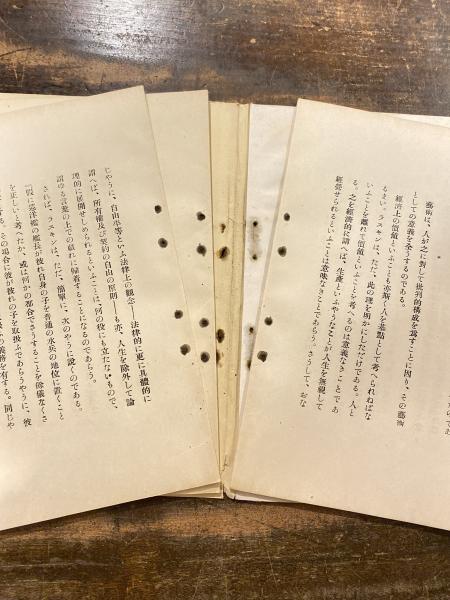 藝術は、人が之に對して批判的構成を爲すことに因り、その藝術
としての意義を全うするのである。
經濟上の價値といふことも亦斯く人を基點として考へられねばな
るまい。ラスキンは、たゞ、此の理を明かにしただけである。人と
いふことを離れて價値といふことを考へるのは意義なきことであ
る。之を經濟的に謂へば、生產といふやうなことが人生を無視して
經營せられるといふことは意味なきことであらう。さうして、おな
じやうに、自由平等といふ法律上の觀念――法律的に更に具體的に
謂へば、所有權及び契約の自由の原則――も亦、人生を除外して論
理的に展開せしめられるといふことは、何の役にも立たないもので、
謂ゆる言葉の上での戲れに歸着することになるのであらう。
されば、ラスキンは、たゞ、簡單に、次のやうに說くのである。
『假に巡洋艦の艦長が彼れ自身の子を普通の水兵の地位に置くこと
を正しいと考へたか、或は何かの都合でさうすることを餘儀なくさ
その場合に彼が彼れの子を取扱ふであらうやうに、彼
扱ふの義務を有する。同じや